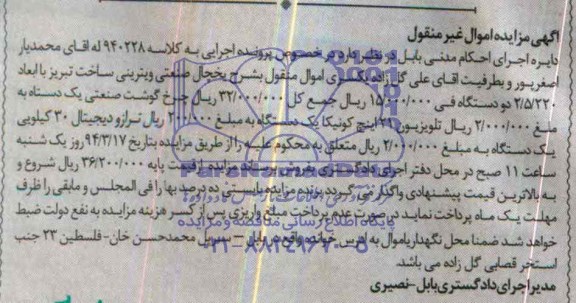 آگهی مزایده اموال غیر منقول
دایره اجرای احکام مدنی بابل در نظر دارد در خصوص پرونده اجرایی به کلاسه ۹۴۰۲۲۸ له آقای محمدیار
اصغرپور و بطرفیت آقای علی گل زاده یکسری اموال منقول بشرح یخچال صنعتی ویترینی ساخت تبریز با ابعاد
۲/۵/۲۲۰ دو دستگاه فی ۱۵/۰۰۰/۰۰۰ ریال جمع کل ۳۲/۰۰۰/۰۰۰ ریال چرخ گوشت صنعتی یک دستاه به
ملغ ۲/۰۰۰/۰۰۰ ریال تلویزیون ۲۱ اینچ کونیکا یک دستگاه به مبلغ ۲۰۰/۰۰۰ ریال ترازو دیجیتال ۳۰ کیلویی
یک دستگاه به مبلغ ۲/۰۰۰/۰۰۰ ریال متعلق به محکوم علیه را از طریق مزایده بتاریخ ۹۴/۲/۱۷ روز یک شنبه
ساعت ۱۱ صبح در محل دفتر اجرای دادگستری بفروش برساند مزایده از قیمت پایه ۳۶/۲۰۰/۰۰۰ ریال شروع و
به بالاترین قیمت پیشنهادی واگذار می گردد برنده مزایده بایستی ده درصد بها را فی المجلس و مابقی را ظرف
مهلت یک ماه پرداخت نماید در صورت عدم پرداخت مبلغ واریزی پس از کسر هزینه مزایده به نفع دولت ضبط
خواهد شد ضمنا محل نگهداری اموال به آدرس خوانده واقع در بابل – سبزیل محمدحسن خان- فلسطین ۲۳ جنب
استخر قصابی گل زاده می باشد.
مدیر اجرای دادگستری بابل-نصیری
پایگاه اطلاع رسانی مناقصه و مزایده
۰۲۱-۸۸۳۴۹۶۷۰-۵